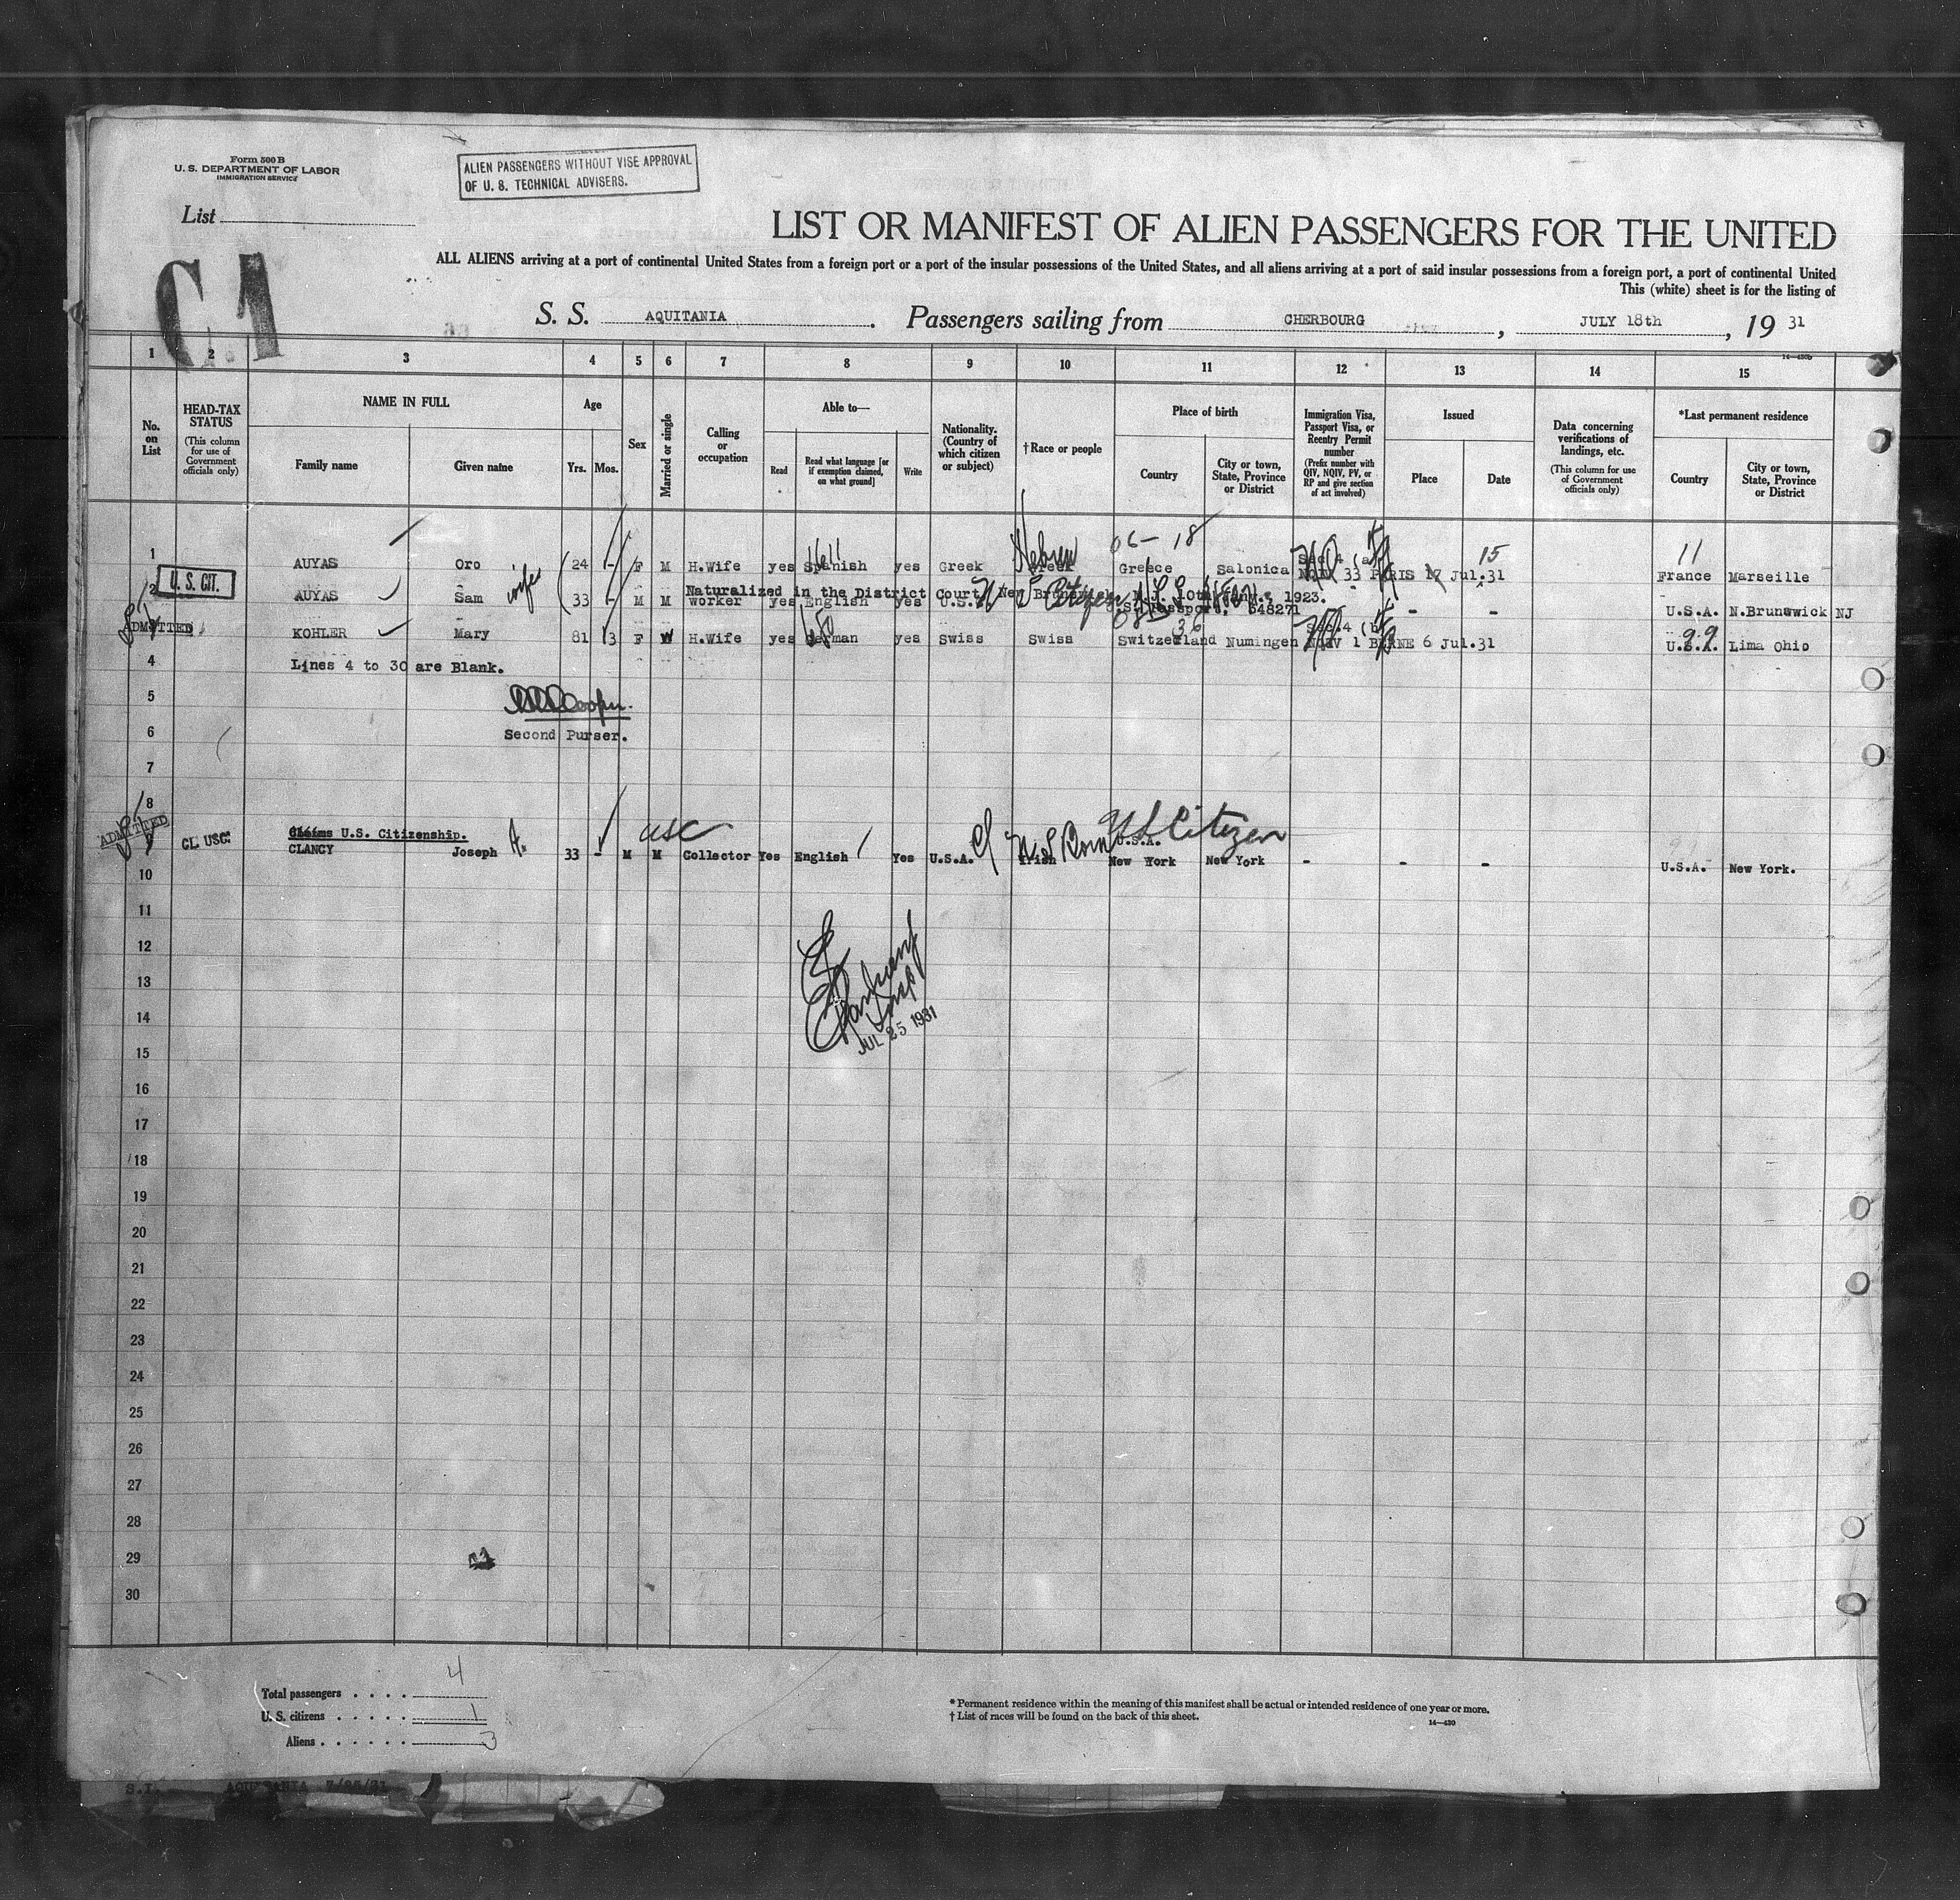 Form 500 B
U. S. DEPARTMENT OF LABOR
IMMIGRATION SERVICE
ALIEN PASSENGERS WITHOUT VISE APPROVAL
OF U. S. TECHNICAL ADVISERS.
List
C.1
LIST OR MANIFEST OF ALIEN PASSENGERS FOR THE UNITED
ALL ALIENS arriving at a port of continental United States from a foreign port or a port of the insular possessions of the United States, and all aliens arriving at a port of said insular possessions from a foreign port, a port of continental United
This (white) sheet is for the listing of
S. S. AQUITANIA. Passengers sailing from CHERBOURG, JULY 18th, 19 31
14—430b
1 2 3 4 5 6 7 8 9 10 11 12 13 14 15
No. on List
HEAD-TAX STATUS
(This column for use of Government officials only)
NAME IN FULL
Family name
Given name
Age
Yrs. Mos.
Sex
Married or single
Calling or occupation
Able to—
Read
Read what language [or if exemption claimed, on what ground]
Write
Nationality. (Country of which citizen or subject)
† Race or people
Place of birth
Country
City or town, State, Province or District
Immigration Visa, Passport Visa, or Reentry Permit number
(Prefix number with QIV, NQIV, PV, or RP and give section of act involved)
Issued
Place
Date
Data concerning verifications of landings, etc.
(This column for use of Government officials only)
*Last permanent residence
Country
City or town, State, Province or District
Hebrew 06-18 15 11
1 AUYAS Oro 24 - F M H.Wife yes Spanish yes Greek Greek Greece Salonica Sec 4 (a) NQIV 33 PARIS 17 Jul.31 France Marseille
wife
U. S. CIT.
Naturalized in the District Court, New Brunswick N.J. 10th 1923.
2 AUYAS Sam 33 - M M worker yes English yes U.S. U S Citizen U.S. Passport, 548271 - - U.S.A. N.Brunswick NJ
ADMITTED
3 KOHLER Mary 81 3 F W H.Wife yes German yes Swiss Swiss Switzerland Numingen Sec 4 (b) NQIV 1 BERNE 6 Jul.31 U.S.A. Lima Ohio
99
4 Lines 4 to 30 are Blank.
5
Cooper.
6 Second Purser.
7
8
ADMITTED
CL. USC.
Claims U.S. Citizenship.
USC
US Citizen
9 CLANCY Joseph A. 33 - M M Collector Yes English Yes U.S.A. Irish U S Born U.S.A. New York New York - - - U.S.A. New York.
10
11
12
13
14
Insp
JUL 25 1931
15
16
17
18
19
20
21
22
23
24
25
26
27
28
29
30
Total passengers . . . . 4
U. S. citizens . . . . . 1
Aliens . . . . . . 3
* Permanent residence within the meaning of this manifest shall be actual or intended residence of one year or more.
† List of races will be found on the back of this sheet.
14—430
S.I. AQUITANIA 7/25/31